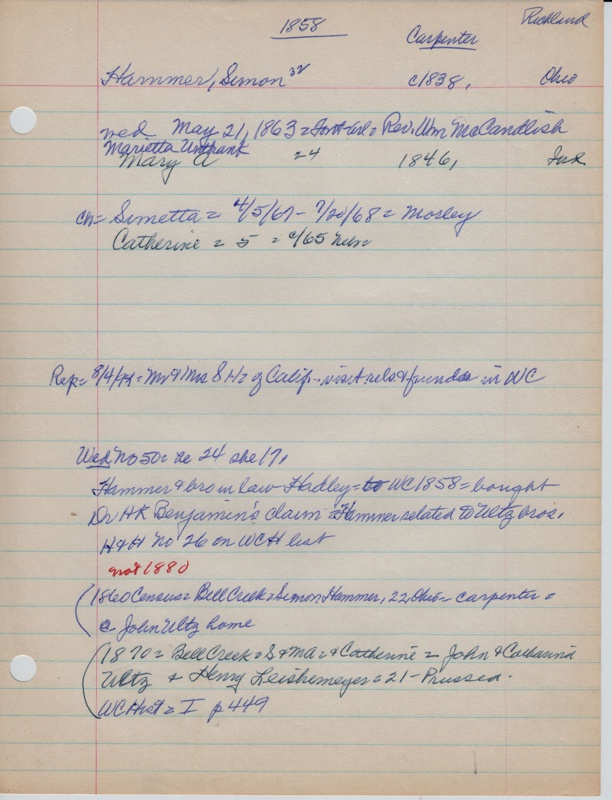 1858
Richland
Carpenter
Hammer, Simon 32 c1838, Ohio
wed May 21, 1863 = = Rev. Wm McCandlish
Marietta Unthank
Mary A 24 1846, Ind
ch= Simetta = 4/5/67 - 7/20/68 = Mosley
Catherine = 5 = c/65 Nebr
Rep= 8/4/ = Mr & Mrs S H = of Calif - visit rels & friends in WC
Wed No 50 = he 24 she 17,
Hammer & bro in law Hadley = to WC 1858 = bought
Dr HR Benjamin's claim = Hammer related to Ultz bros.
H&H No 26 on WCH list
not 1880
(1860 Census = Bell Creek = Simon Hammer, 22, Ohio = carpenter =
c John Ultz home
(1870 = Bell Creek = S & Ma = & Catherine = John & Catharina
Ultz & Henry = 21 - Prussia.
WC Hist = I p 449